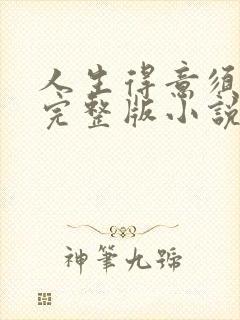 人生得意須
完整版小說
神筆九號